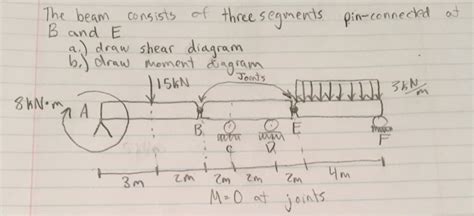 The beam consists of three segments pin-connected at
B and E
a.) draw shear diagram
b.) draw moment diagram
Joints
15kN
3kN/m
8kN·m
A
B
C
D
E
F
3m
2m
2m
2m
2m
4m
M=0 at joints